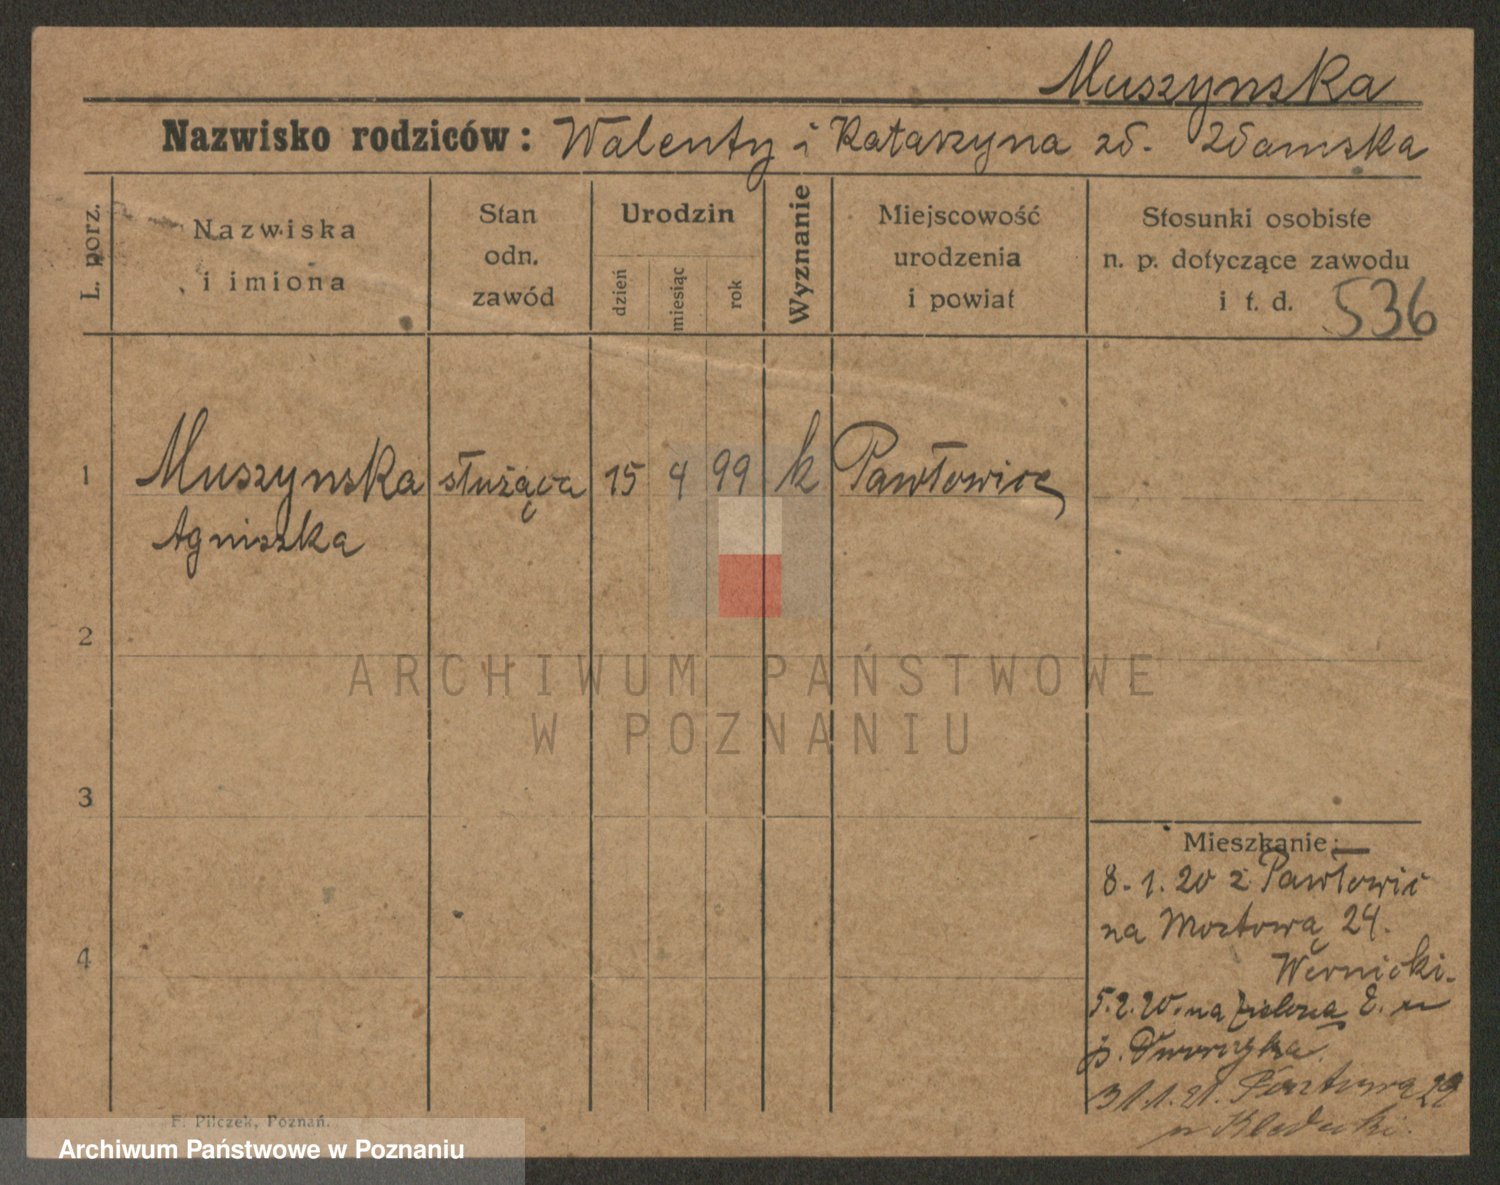 Muszynska
Nazwisko rodziców: Walenty i Katarzyna zd. Zdamska
L. porz.
Nazwiska
i imiona
Stan
odn.
zawód
Urodzin
dzień
miesiąc
rok
Wyznanie
Miejscowość
urodzenia
i powiat
Stosunki osobiste
n. p. dotyczące zawodu
i t. d. 536
1 Muszynska służąca 15 4 99 k Pawłowice
Agniszka
2
ARCHIWUM PAŃSTWOWE
W POZNANIU
3
Mieszkanie:
8. 1. 20 z Pawłowic
na Mostową 24.
Wernicki.
4
5. 2. 20. na Zieloną
31. 1. 21.
F. Pilczek, Poznań.
Archiwum Państwowe w Poznaniu